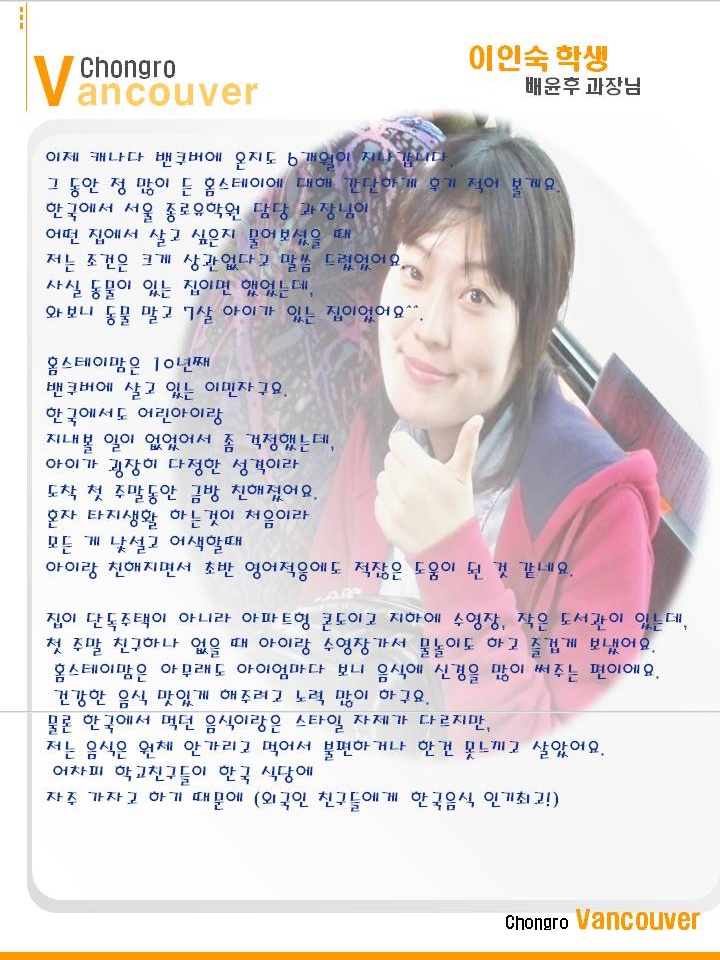 Chongro
Vancouver
이인숙 학생
배윤후 과장님
이제 캐나다 밴쿠버에 온지도 6개월이 지나갑니다.
그 동안 정 많이 든 홈스테이에 대해 간단하게 후기 적어 볼게요.
한국에서 서울 종로유학원 담당 과장님이
어떤 집에서 살고 싶은지 물어보셨을 때
저는 조건은 크게 상관없다고 말씀 드렸었어요
사실 동물이 있는 집이면 했었는데,
와보니 동물 말고 7살 아이가 있는 집이었어요^^.
홈스테이맘은 10년째
밴쿠버에 살고 있는 이민자구요.
한국에서도 어린아이랑
지내볼 일이 없었어서 좀 걱정했는데,
아이가 굉장히 다정한 성격이라
도착 첫 주말동안 금방 친해졌어요.
혼자 타지생활 하는것이 처음이라
모든 게 낯설고 어색할때
아이랑 친해지면서 초반 영어적응에도 적잖은 도움이 된 것 같네요.
집이 단독주택이 아니라 아파트형 콘도이고 지하에 수영장, 작은 도서관이 있는데,
첫 주말 친구하나 없을 때 아이랑 수영장가서 물놀이도 하고 즐겁게 보냈어요.
홈스테이맘은 아무래도 아이엄마다 보니 음식에 신경을 많이 써주는 편이에요.
건강한 음식 맛있게 해주려고 노력 많이 하구요.
물론 한국에서 먹던 음식이랑은 스타일 자체가 다르지만,
저는 음식은 원체 안가리고 먹어서 불편하거나 한건 못느끼고 살았어요.
어차피 학교친구들이 한국 식당에
자주 가자고 하기 때문에 (외국인 친구들에게 한국음식 인기최고!)
Chongro Vancouver